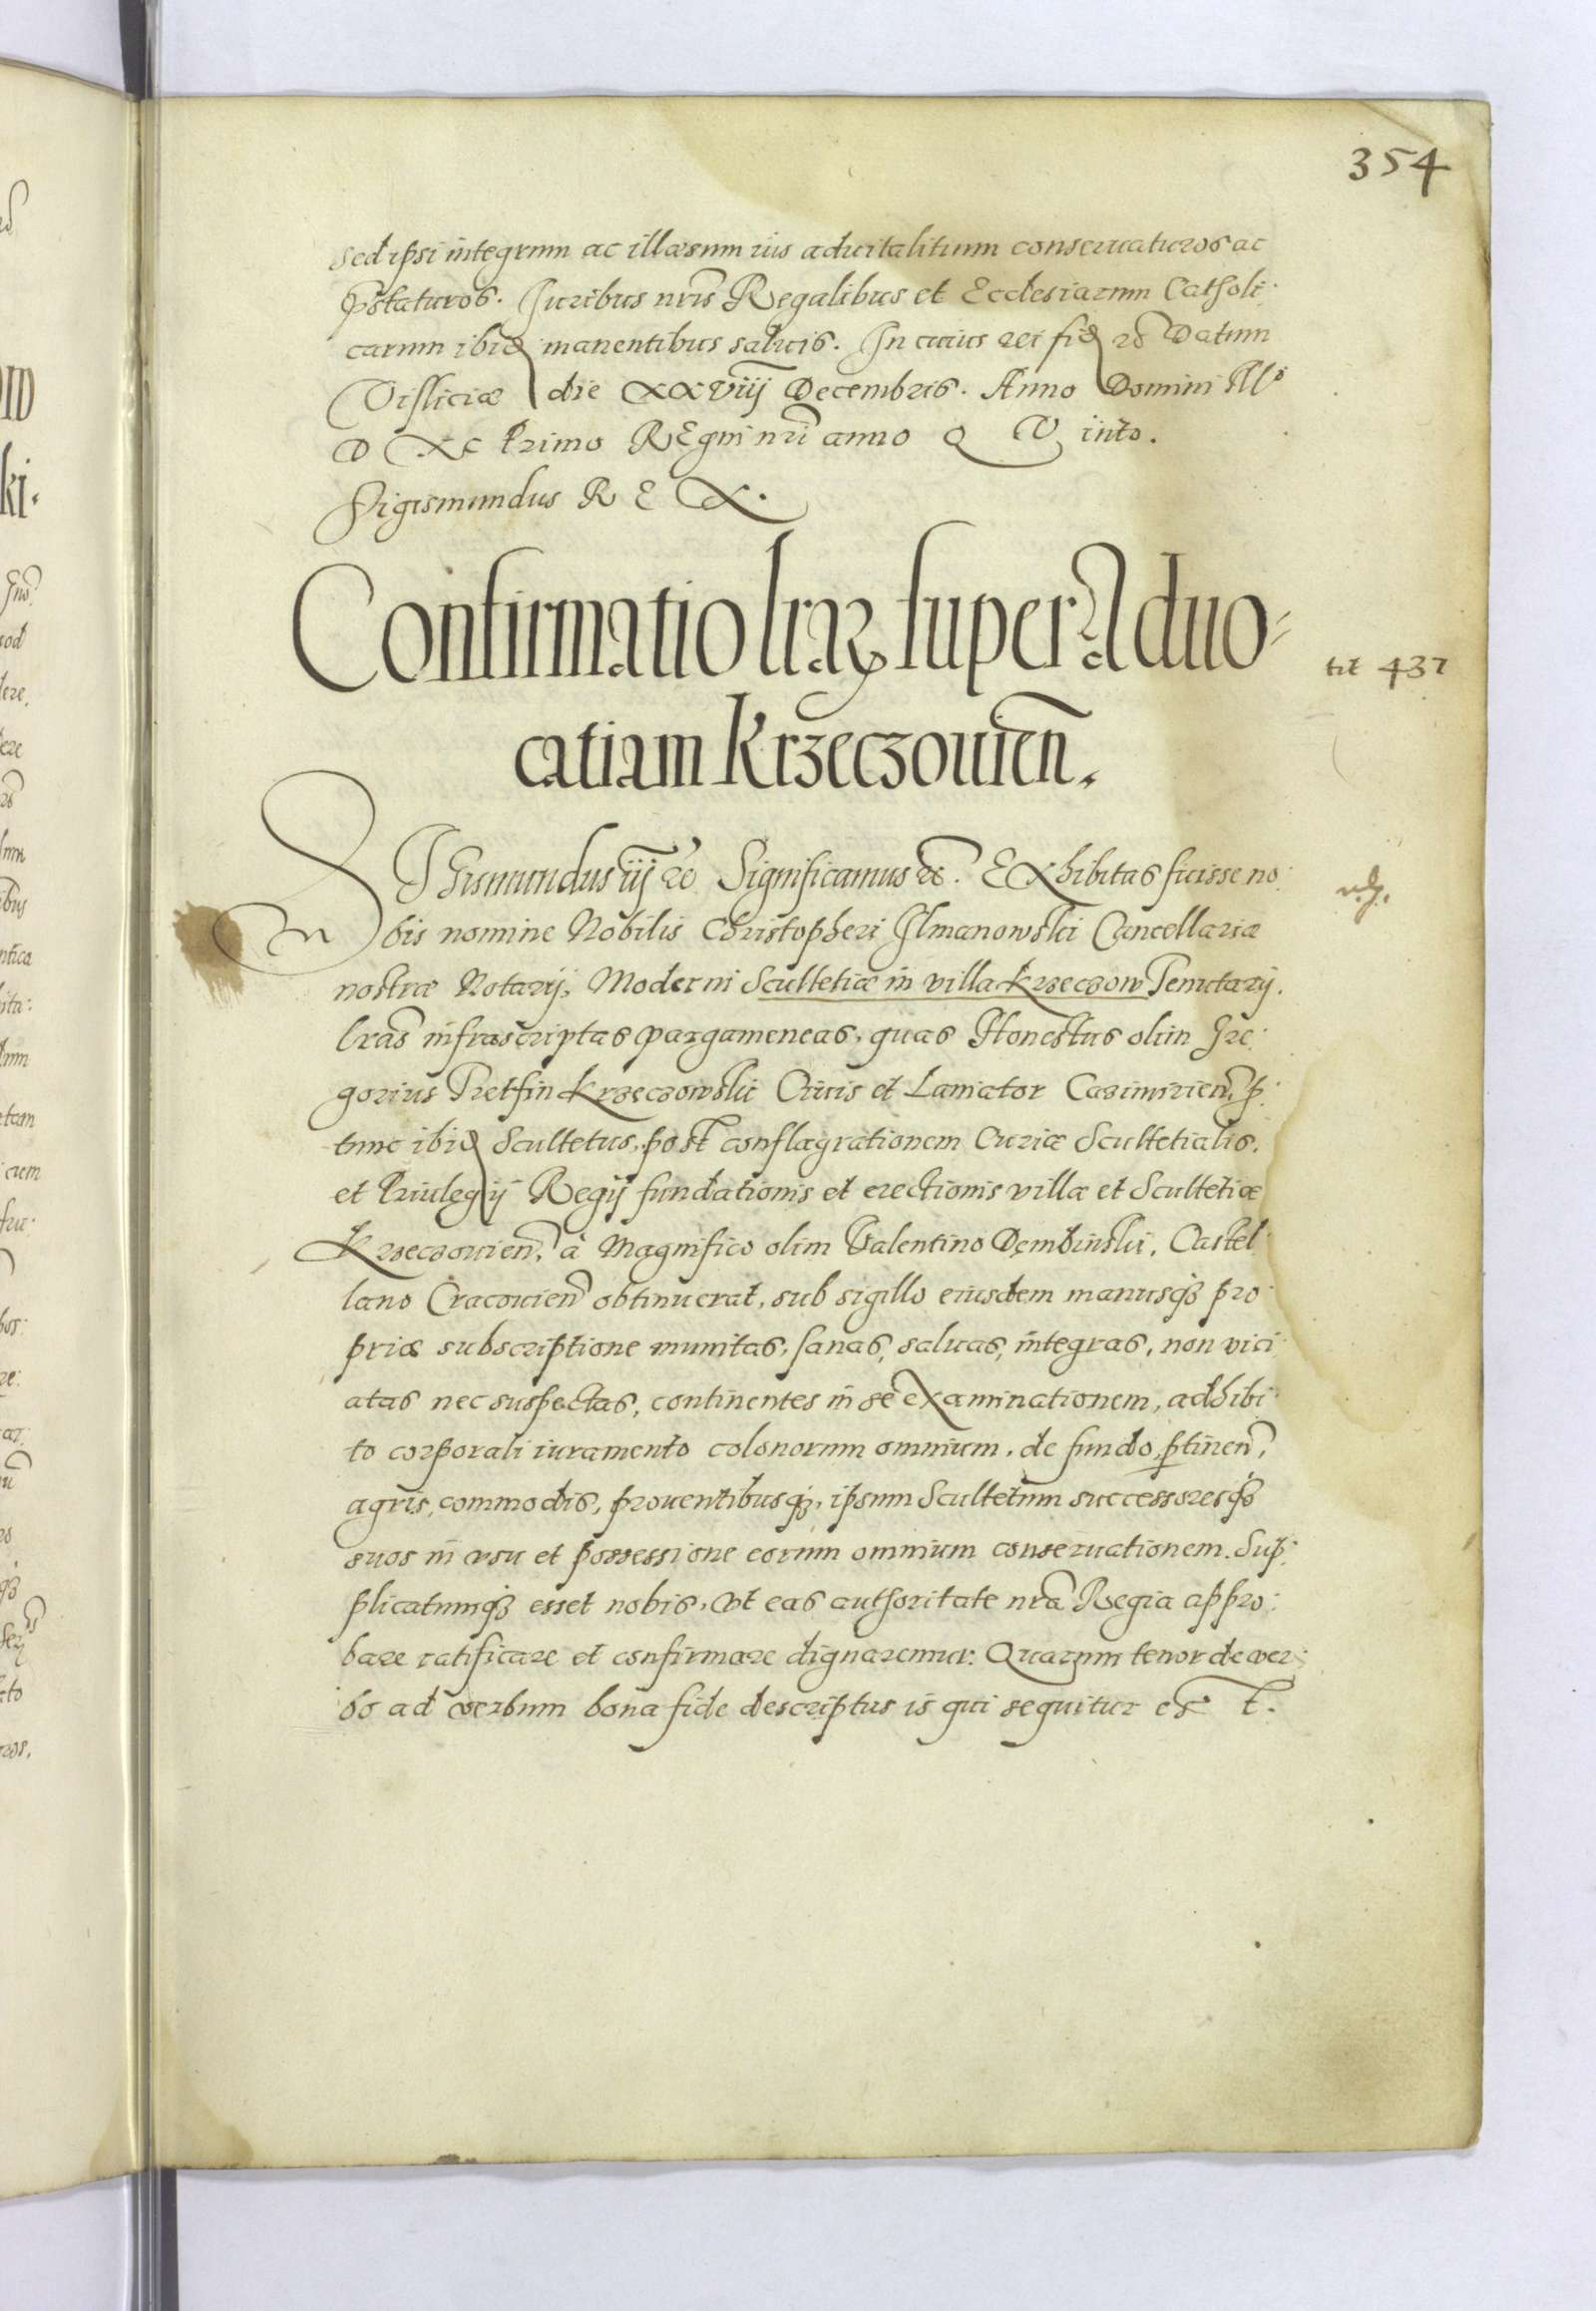 354
sed ipsi integrum ac illæsum ius aduitalitium conseruaturos ac
p̄staturos. Iuribus nr̄is Regalibus et Ecclesiarum Catholi:
carum ibid̄ manentibus saluis. In cuius rei fid̄ &c̄ Datum
Visliciæ die XXVIIJ Decembris. Anno Domini M°
D XC Primo REgni nr̄i anno QVinto.
Sigismundus REX.
Confirmatio lr̄aꝝ super Aduo-
tit 437
catiam Krzeczouien̄.
SIGismundus iij &c Significamus &c. EXhibitas fuisse no:
bis nomine Nobilis Christopheri Ilmanowski Cancellariæ
nostræ Notarij, Moderni Scultetiæ in villa Krzeczow Tenutarij.
lr̄as infrascriptas pargameneas, quas Honestus olim Gre:
gorius Pretfin Krzeczowski Ciuis et Laniator Casimirien̄. p:
tunc ibid̄ Scultetus, post conflagrationem Curiæ Scultetialis,
et Priulegij Regij fundationis et erectionis villæ et Scultetiæ
Krzeczouien̄, à Magnifico olim Valentino Dembinski, Castel:
lano Cracouien̄ obtinuerat, sub sigillo eiusdem manusqȝ pro:
priæ subscriptione munitas, sanas, saluas, integras, non vici:
atas nec suspectas, continentes in se eXaminationem, adhibi:
to corporali iuramento colonorum omnium, de fundo, ꝑtinen̄,
agris, commodis, prouentibusqȝ, ipsum Scultetum successoresqȝ
suos in vsu et possessione eorum omnium conseruationem. Sup:
plicatumqȝ esset nobis, vt eas authoritate nr̄a Regia appro:
bare ratificare et confirmare dignaremur: Quarum tenor de ver:
bo ad verbum bona fide descriptus is qui sequitur est.